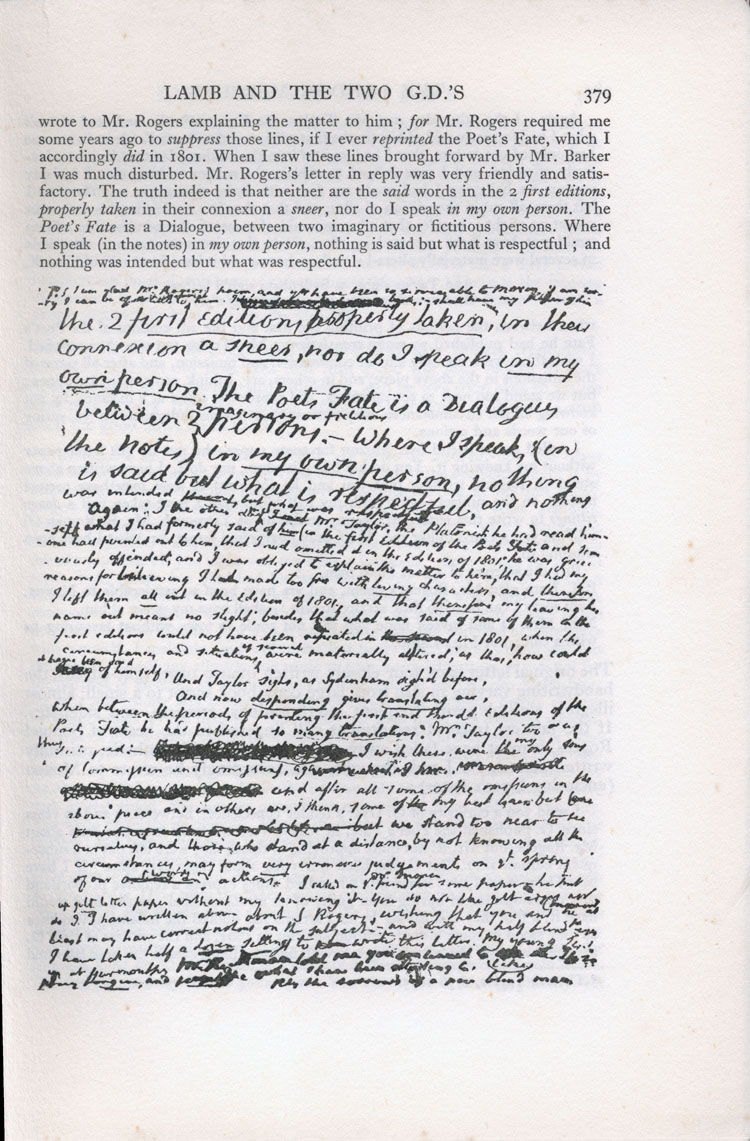 LAMB AND THE TWO G.D.'S 379
wrote to Mr. Rogers explaining the matter to him ; for Mr. Rogers required me
some years ago to suppress those lines, if I ever reprinted the Poet's Fate, which I
accordingly did in 1801. When I saw these lines brought forward by Mr. Barker
I was much disturbed. Mr. Rogers's letter in reply was very friendly and satis-
factory. The truth indeed is that neither are the said words in the 2 first editions,
properly taken in their connexion a sneer, nor do I speak in my own person. The
Poet's Fate is a Dialogue, between two imaginary or fictitious persons. Where
I speak (in the notes) in my own person, nothing is said but what is respectful ; and
nothing was intended but what was respectful.
the 2 first editions, properly taken, in their
connexion a sneer, nor do I speak in my
own person. The Poets Fate is a Dialogue
between 2 imaginary or fictitious
persons. – Where I speak, (in
the notes) in my own person, nothing
is said but what is respectful, and nothing
was intended but what was respectful
Again: the other day Mr. Taylor, the Platonist he had read him-
-self what I had formerly said of him (in the first Edition of the Poets Fate and some
one had pointed out to him, that I had omitted it in the Edition of 1801: he was
offended, and I was obliged to explain the matter to him, that I had my
reasons for believing I had made too free with living characters, and therefore
I left them all out in the Edition of 1801, and that therefore my leaving his
name out meant no slight; besides that what was said of some of them in the
first editions could not have been repeated in 1801, when the
circumstances, and situations of several were materially altered, as thus, how could
of himself. And Taylor sighs, as Sydenham sigh'd before,
And now desponding gives translating o'er,
when between the periods of printing the first and third Editions of the
Poets Fate he has published so many translations. Mr. Taylor too was
I wish these were the only sins
of commission and omission,
and after all some of the omissions in the
above pieces and in others are, I think, some of the my best
but we stand too near to
ourselves, and those, who stand at a distance, by not knowing all the
circumstances, may form very erroneous judgements on ye. spring
of our actions. I called on a friend for some paper he put
up gilt letter paper without my knowing it. You do not like gilt
do I. I have written above about S Rogers, wishing that you and
may have correct notions on the subject – and with my half blind
I have taken half a dozen sittings to wrote this letter. My young
a poor blind man